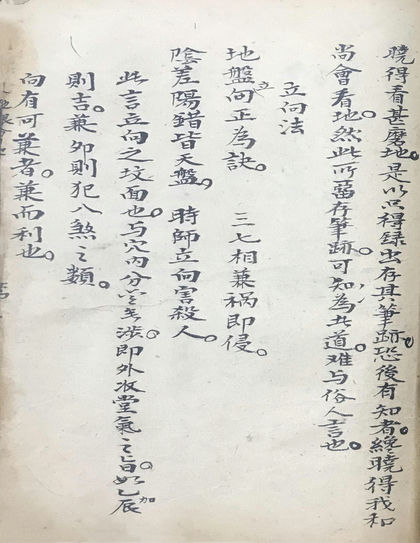 曉得看甚麽地。是以只得録出存其筆跡。恐後有知者。終曉得我和
尚會看地。然此所畱存筆跡。可知為此道。难与俗人言也。
立向法
地盤立向正為訣。 三七相兼禍即侵。
陰差陽錯皆天盤。 時師立向害殺人。
此言立向之坟面也。与穴内分金無涉。即外收堂氣之旨。如乙加辰
則吉。兼卯則犯八煞之類。
向有可兼者。兼而利也。